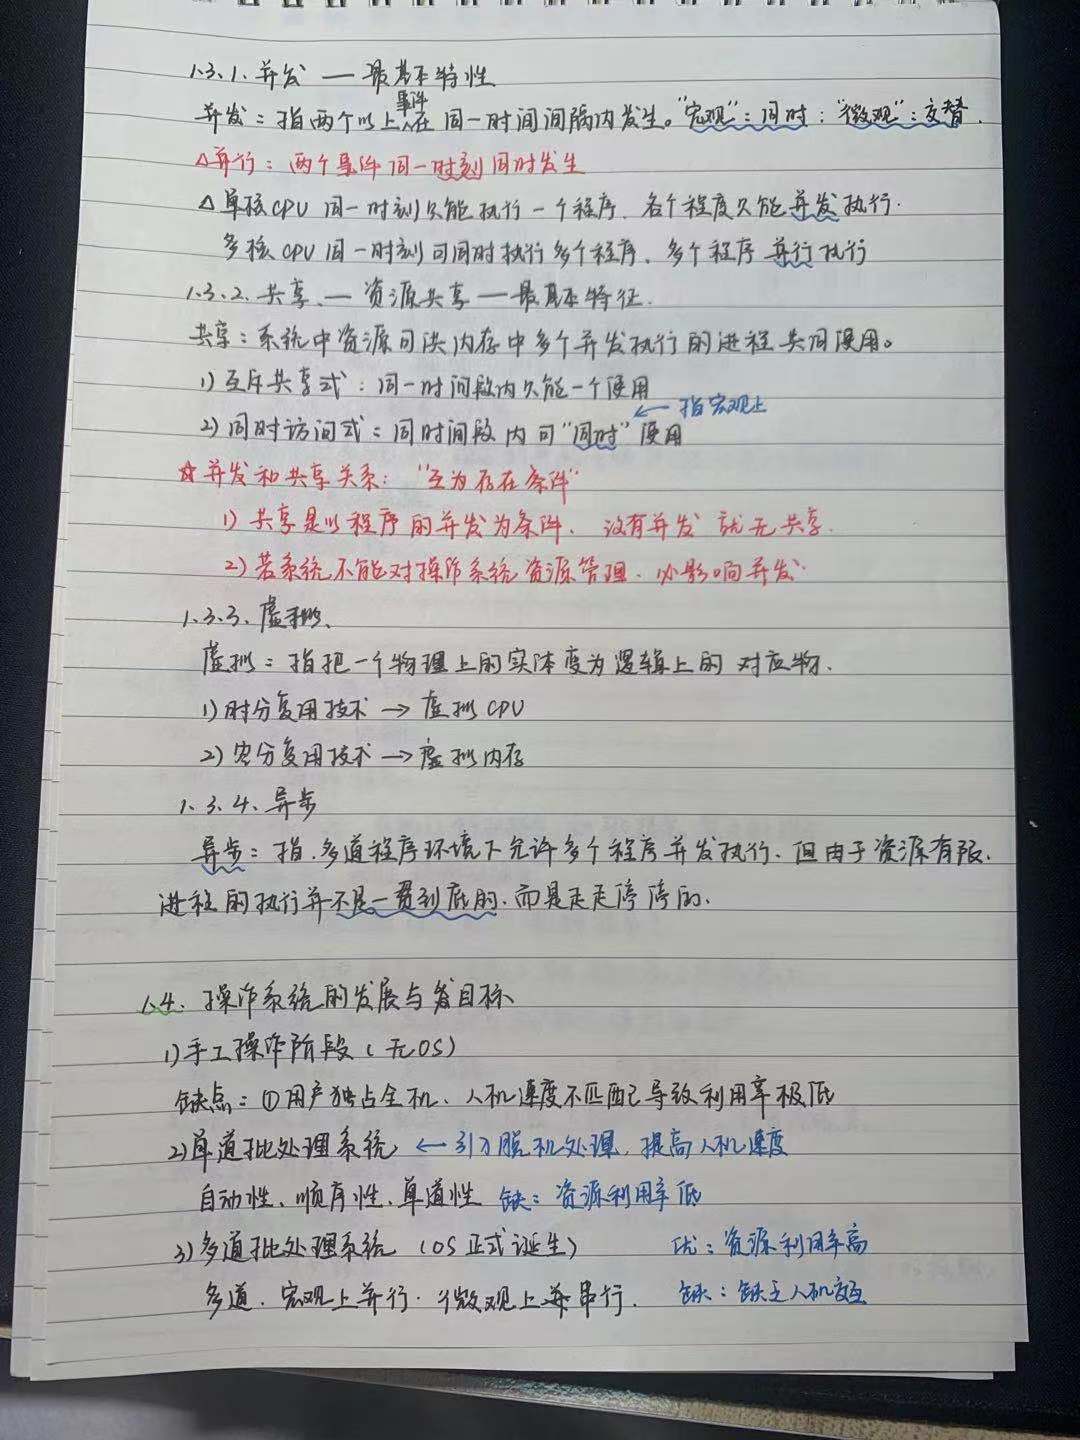 1.3.1. 并发 — 最基本特性
并发：指两个以上事件在同一时间间隔内发生。"宏观"：同时；"微观"：交替.
△并行：两个事件同一时刻同时发生
△单核CPU 同一时刻只能执行一个程序. 各个程度只能并发执行.
多核CPU 同一时刻可同时执行多个程序、多个程序并行执行
1.3.2. 共享. — 资源共享 — 最基本特征.
共享：系统中资源可供内存中多个并发执行的进程共同使用。
1) 互斥共享式：同一时间段内只能一个使用
← 指宏观上
2) 同时访问式：同时间段内可"同时"使用
☆并发和共享关系："互为存在条件"
1) 共享是以程序的并发为条件、没有并发就无共享.
2) 若系统不能对操作系统资源管理. 必影响并发
1.3.3. 虚拟、
虚拟：指把一个物理上的实体变为逻辑上的对应物.
1) 时分复用技术 → 虚拟CPU
2) 空分复用技术 → 虚拟内存
1.3.4. 异步
异步：指.多道程序环境下允许多个程序并发执行、但由于资源有限.
进程的执行并不是一贯到底的、而是走走停停的.
1.4. 操作系统的发展与发目标、
1) 手工操作阶段 (无OS)
缺点：①用户独占全机、人机速度不匹配导致利用率极低
2) 单道批处理系统 ← 引入脱机处理, 提高人机速度
自动性、顺序性、单道性 缺：资源利用率低
3) 多道批处理系统 (OS正式诞生) 优：资源利用率高
多道. 宏观上并行. 微观上串行. 缺：缺乏人机交互